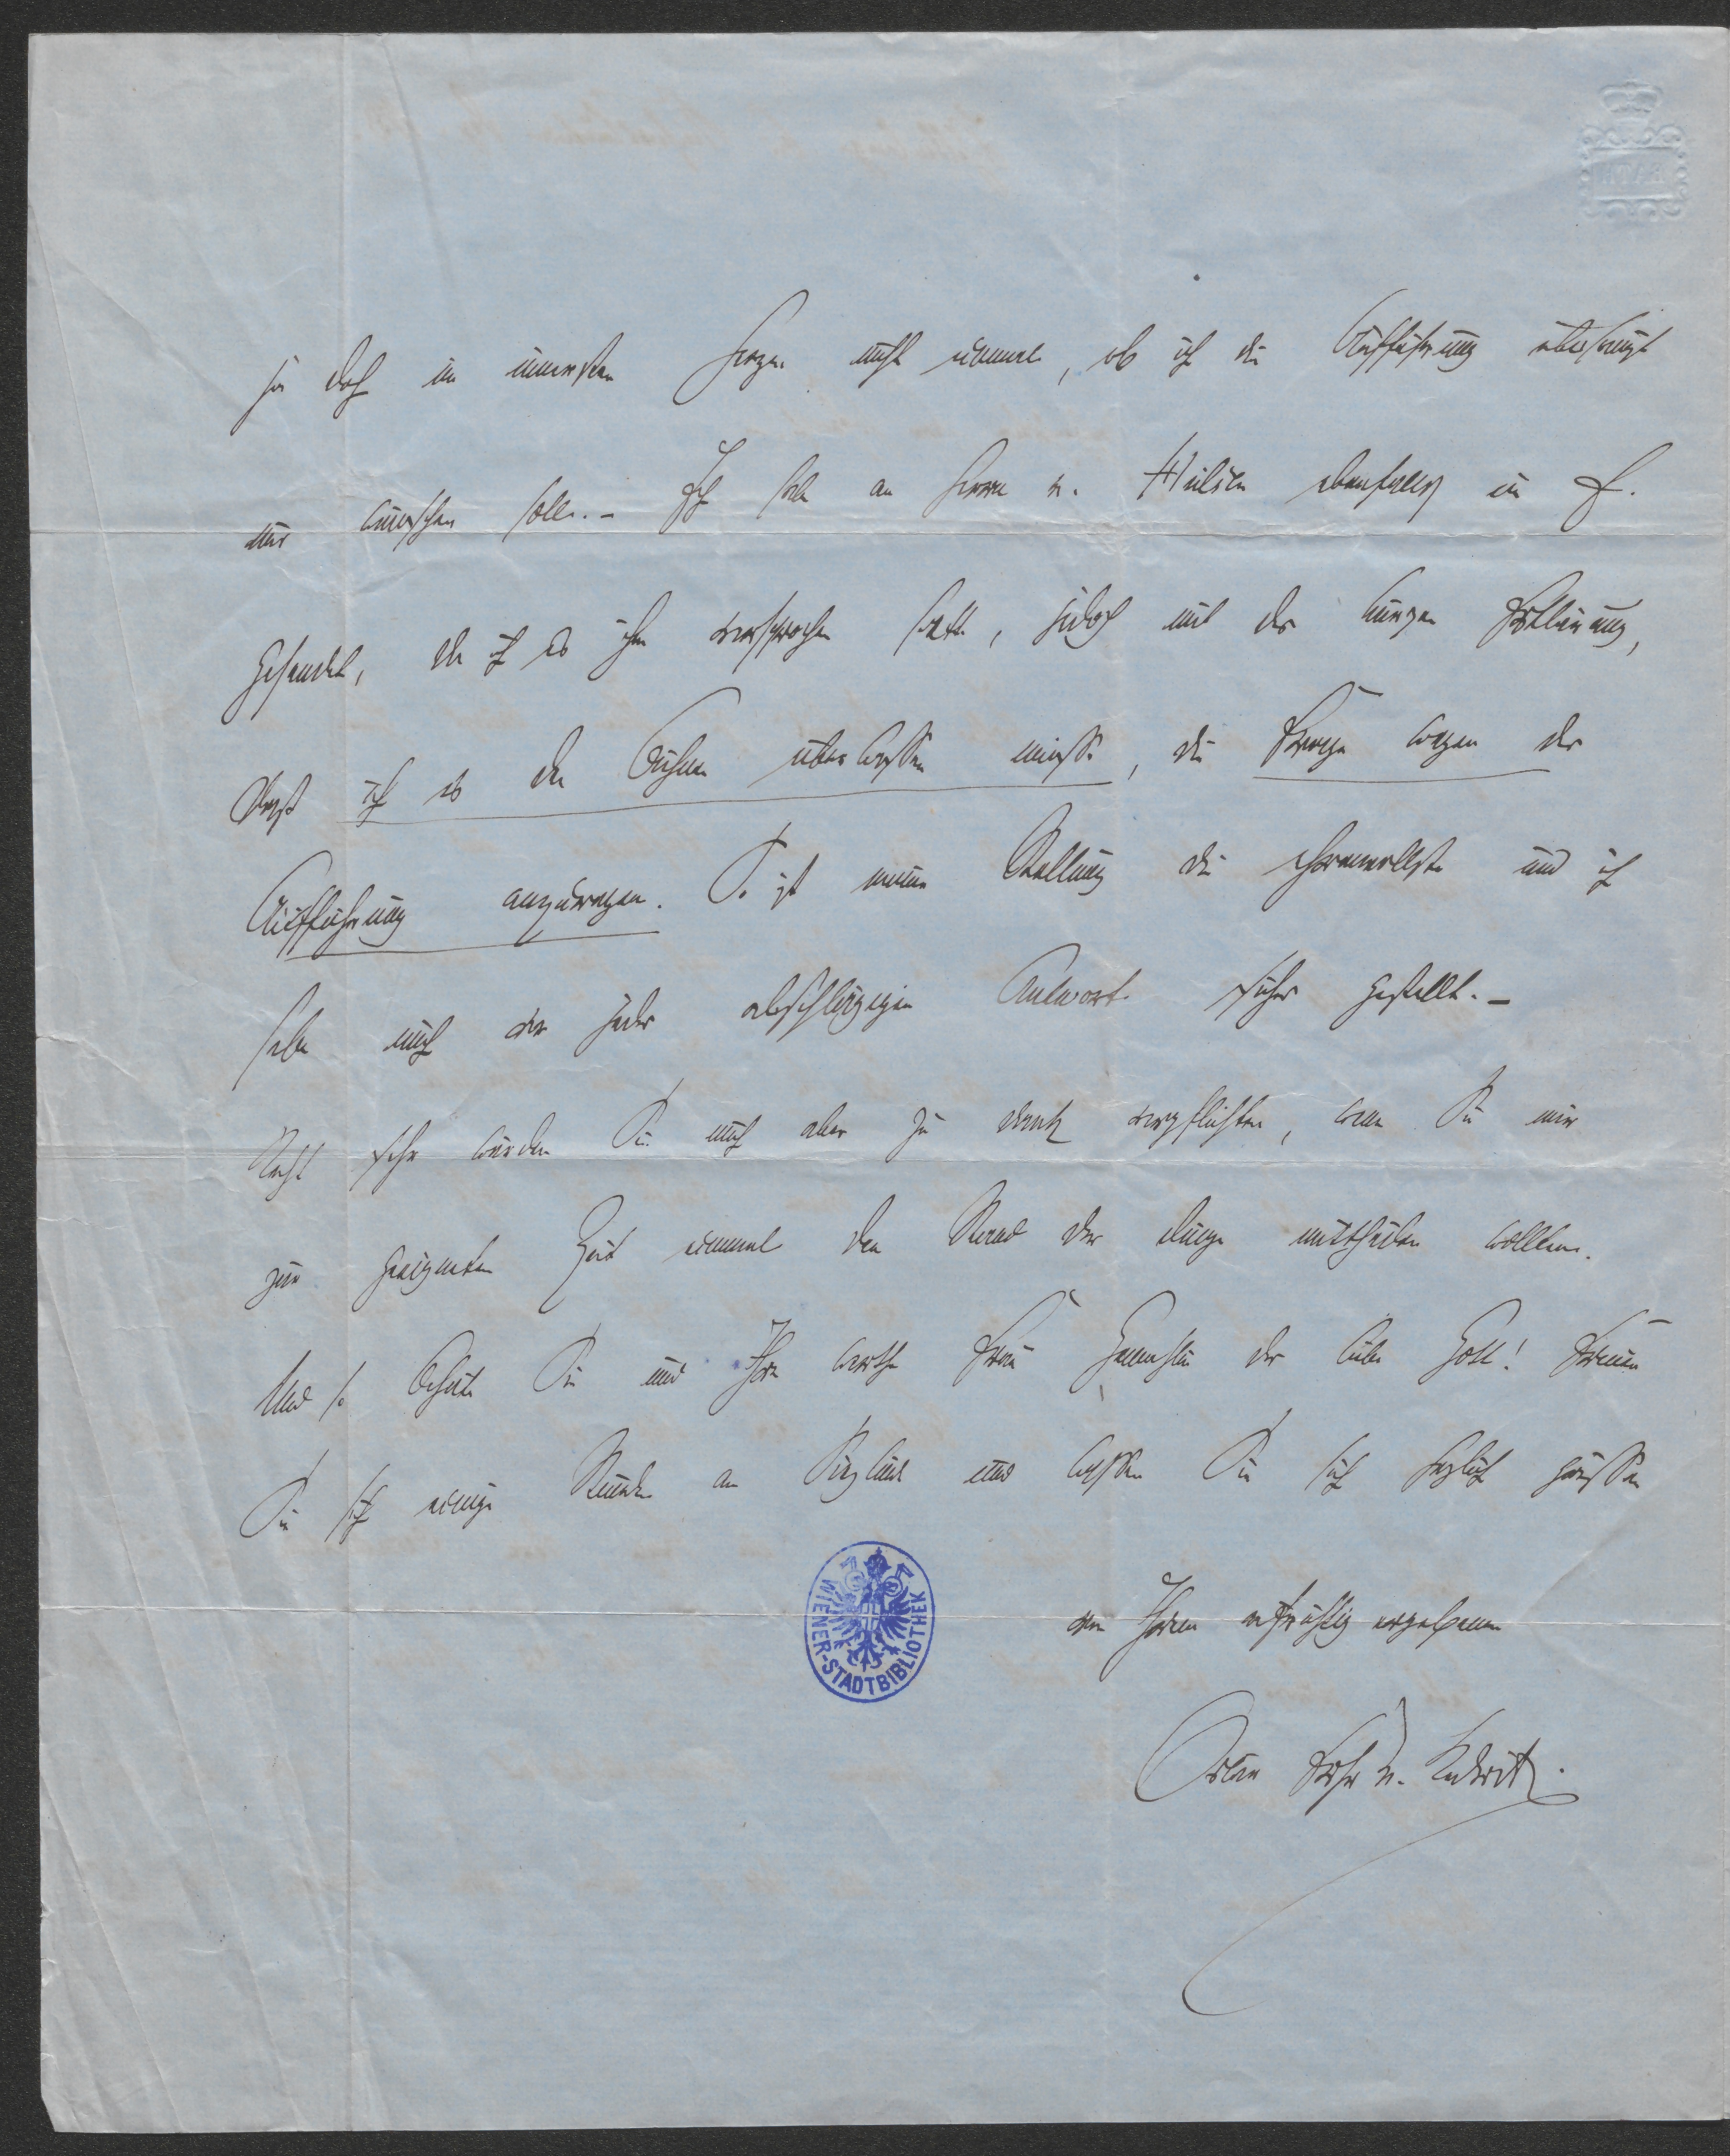 ja doch im innersten Herzen nicht einmal, ob ich die Aufführung überhaupt
nur wünschen soll. – Ich habe an Herrn v. Hülsen ebenfalls ein E.
gesandt, da ich es ihm versprochen hatte, jedoch mit der Erklärung,
daß ich es den Bühnen überlassen müsse, die Frage wegen der
Aufführung anzuregen. So ist meine Stellung die ehrenvollste und ich
habe mich vor jeder abschlägigen Antwort sicher gestellt. –
Recht sehr würden Sie mich aber zu Dank verpflichten, wenn Sie mir
zur geeigneten Zeit einmal den Stand der Dinge mittheilen wollten.
Und so behüte Sie und Ihre werthe Frau Gemahlin der liebe Gott! Freuen
Sie sich einige Stunden am und lassen Sie sich herzlich grüßen
von Ihrem aufrichtig ergebenen
Oskar Frhr v. Redwitz.
WIENER-STADTBIBLIOTHEK
BATH